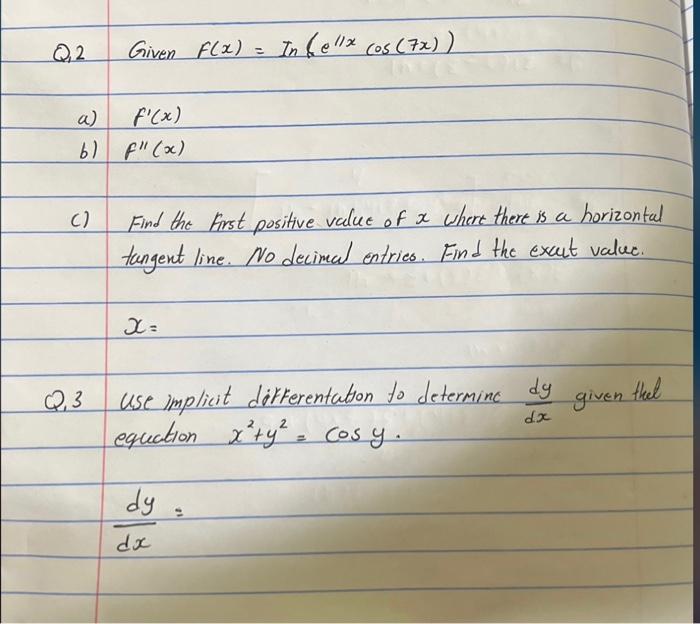 Q.2 Given f(x) = In (e^11x cos(7x))
a) f'(x)
b) f"(x)
c) Find the first positive value of x where there is a horizontal
tangent line. No decimal entries. Find the exact value.
x =
Q.3 Use implicit differentation to determine dy/dx given that
equation x²+y² = cos y.
dy/dx =